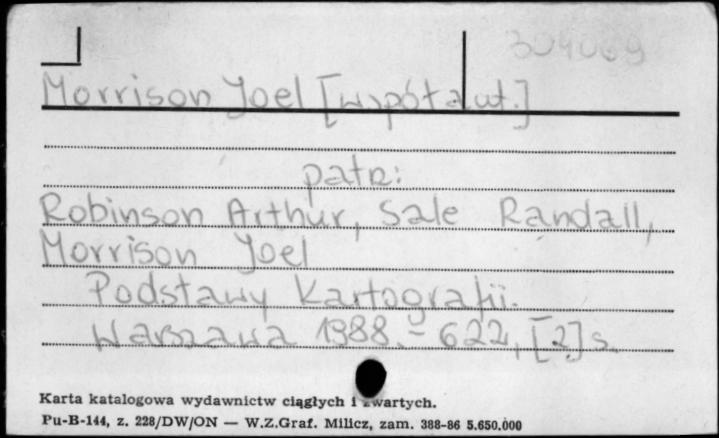 304069
Morrison Joel [współaut.]
patrz:
Robinson Arthur, Sale Randall,
Morrison Joel
Podstawy Kartografii.
Warszawa 1988. - 622, [2] s.
Karta katalogowa wydawnictw ciągłych i zwartych.
Pu-B-144, z. 228/DW/ON — W.Z.Graf. Milicz, zam. 388-86 5.650.000